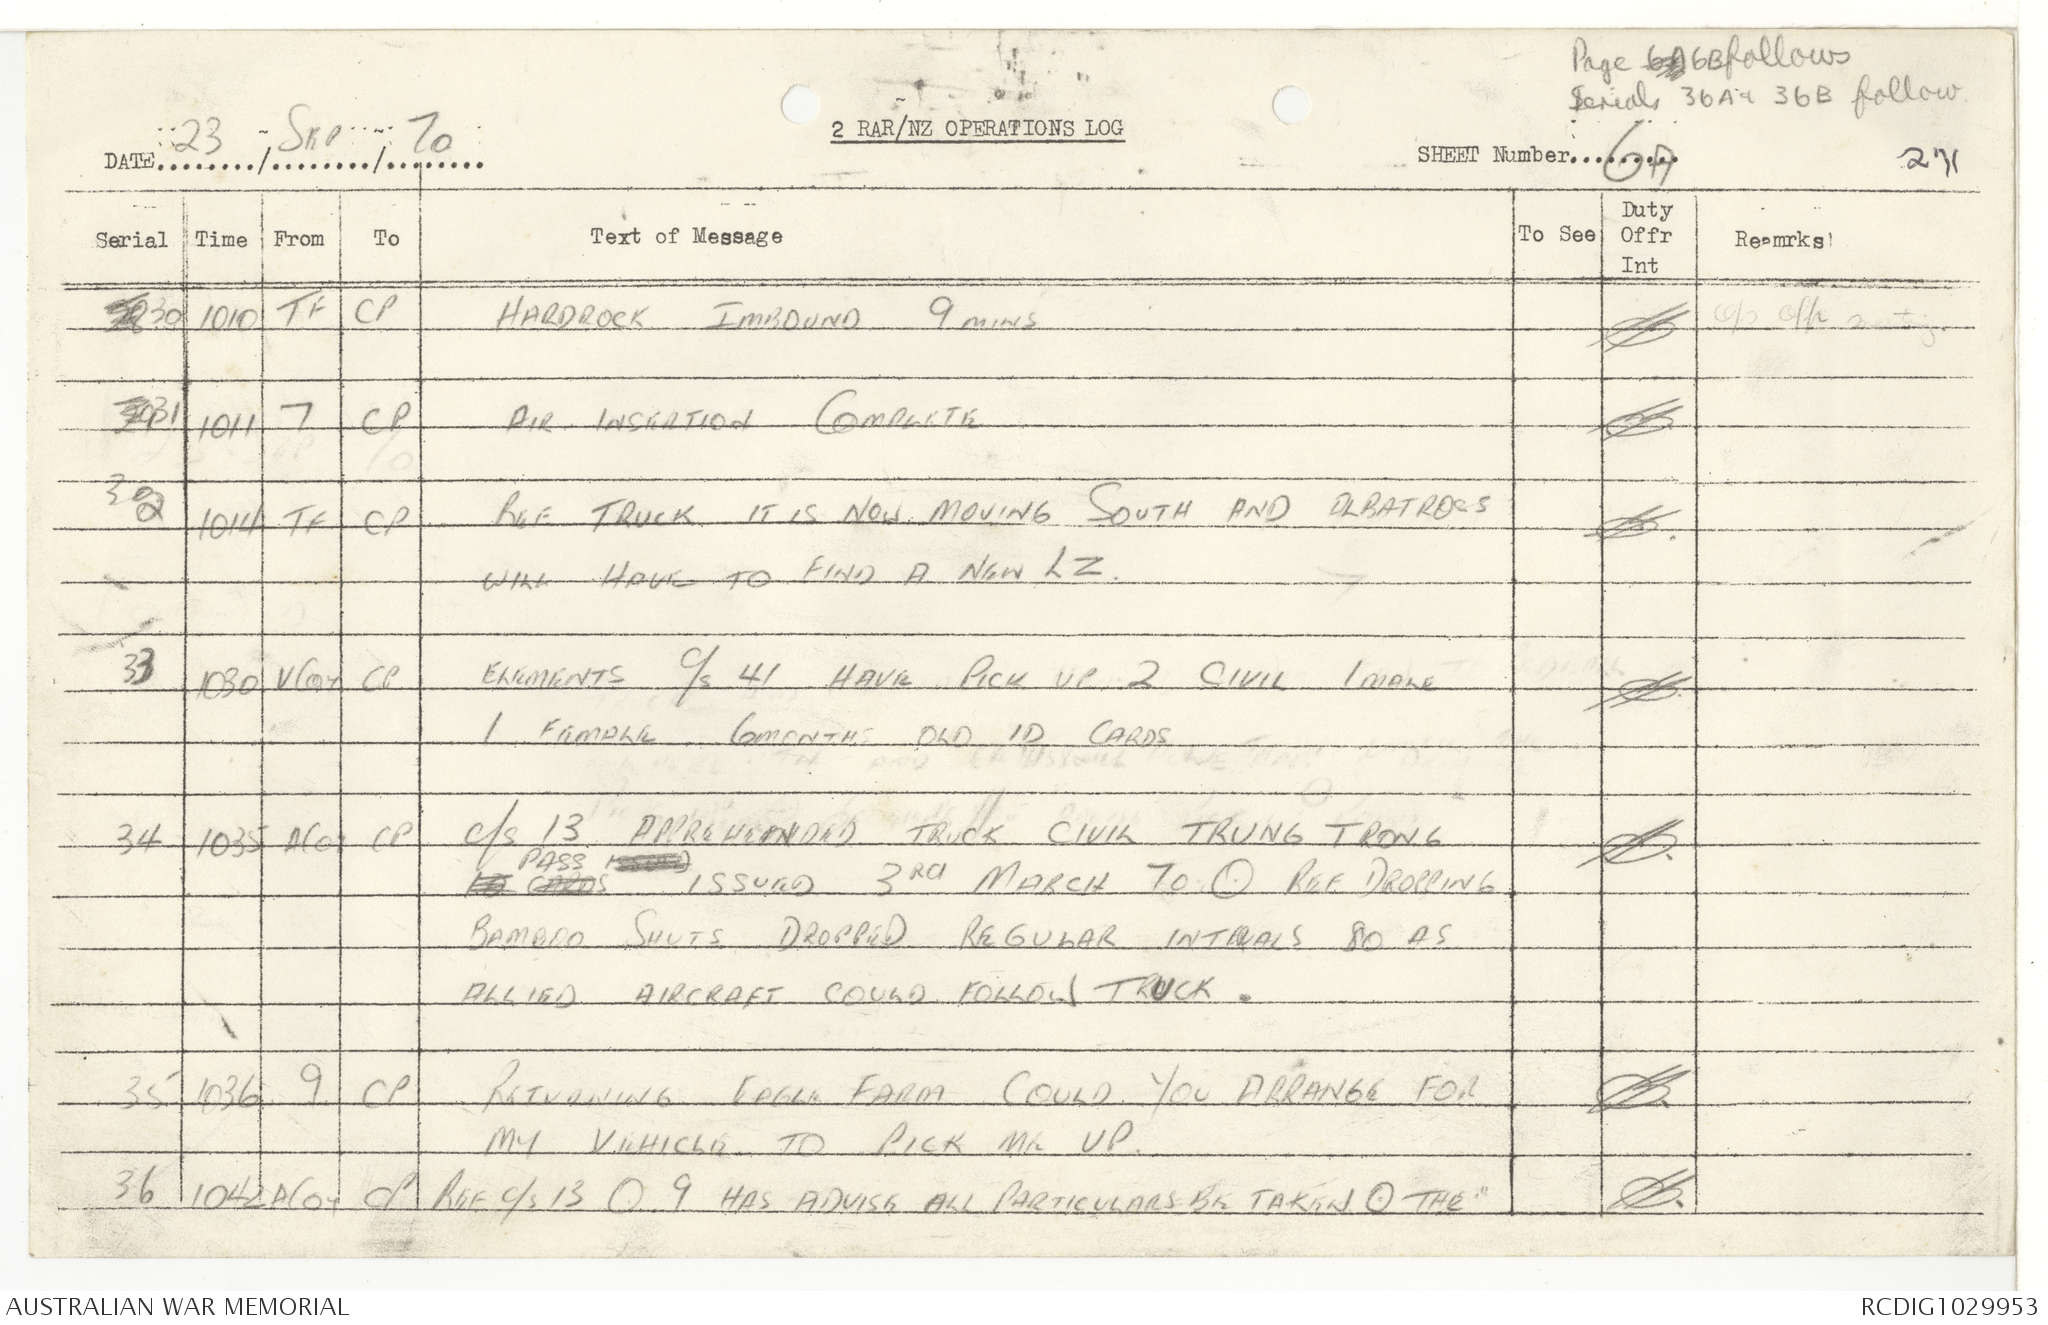 Page 6B follows
Serials 36A & 36B follow
DATE 23 / SEP / 70
2 RAR/NZ OPERATIONS LOG
SHEET Number 6A
Serial Time From To Text of Message To See Duty Offr Int Remrks
30 1010 TF CP HARDROCK IMBOUND 9 MINS
31 1011 7 CP AIR INSERTION COMPLETE
32 1014 TF CP REF TRUCK IT IS NOW MOVING SOUTH AND ALBATROSS
WILL HAVE TO FIND A NEW LZ.
33 1030 V COY CP ELEMENTS C/S 41 HAVE PICK UP 2 CIVIL 1 MALE
1 FEMALE 6 MONTHS OLD ID CARDS
34 1035 A COY CP C/S 13 APPREHEINDED TRUCK CIVIL TRUNG TRONG
PASS ISSUED 3RD MARCH 70 ⊙ REF DROPPING
BAMBOO SHUTS DROPPED REGULAR INTRVALS SO AS
ALLIED AIRCRAFT COULD FOLLOW TRUCK.
35 1036 9 CP RETURNING EAGLE FARM COULD YOU ARRANGE FOR
MY VEHICLE TO PICK ME UP.
36 1042 A COY CP REF C/S 13 ⊙ 9 HAS ADVISE ALL PARTICULARS BE TAKEN ⊙ THE
AUSTRALIAN WAR MEMORIAL
RCDIG1029953